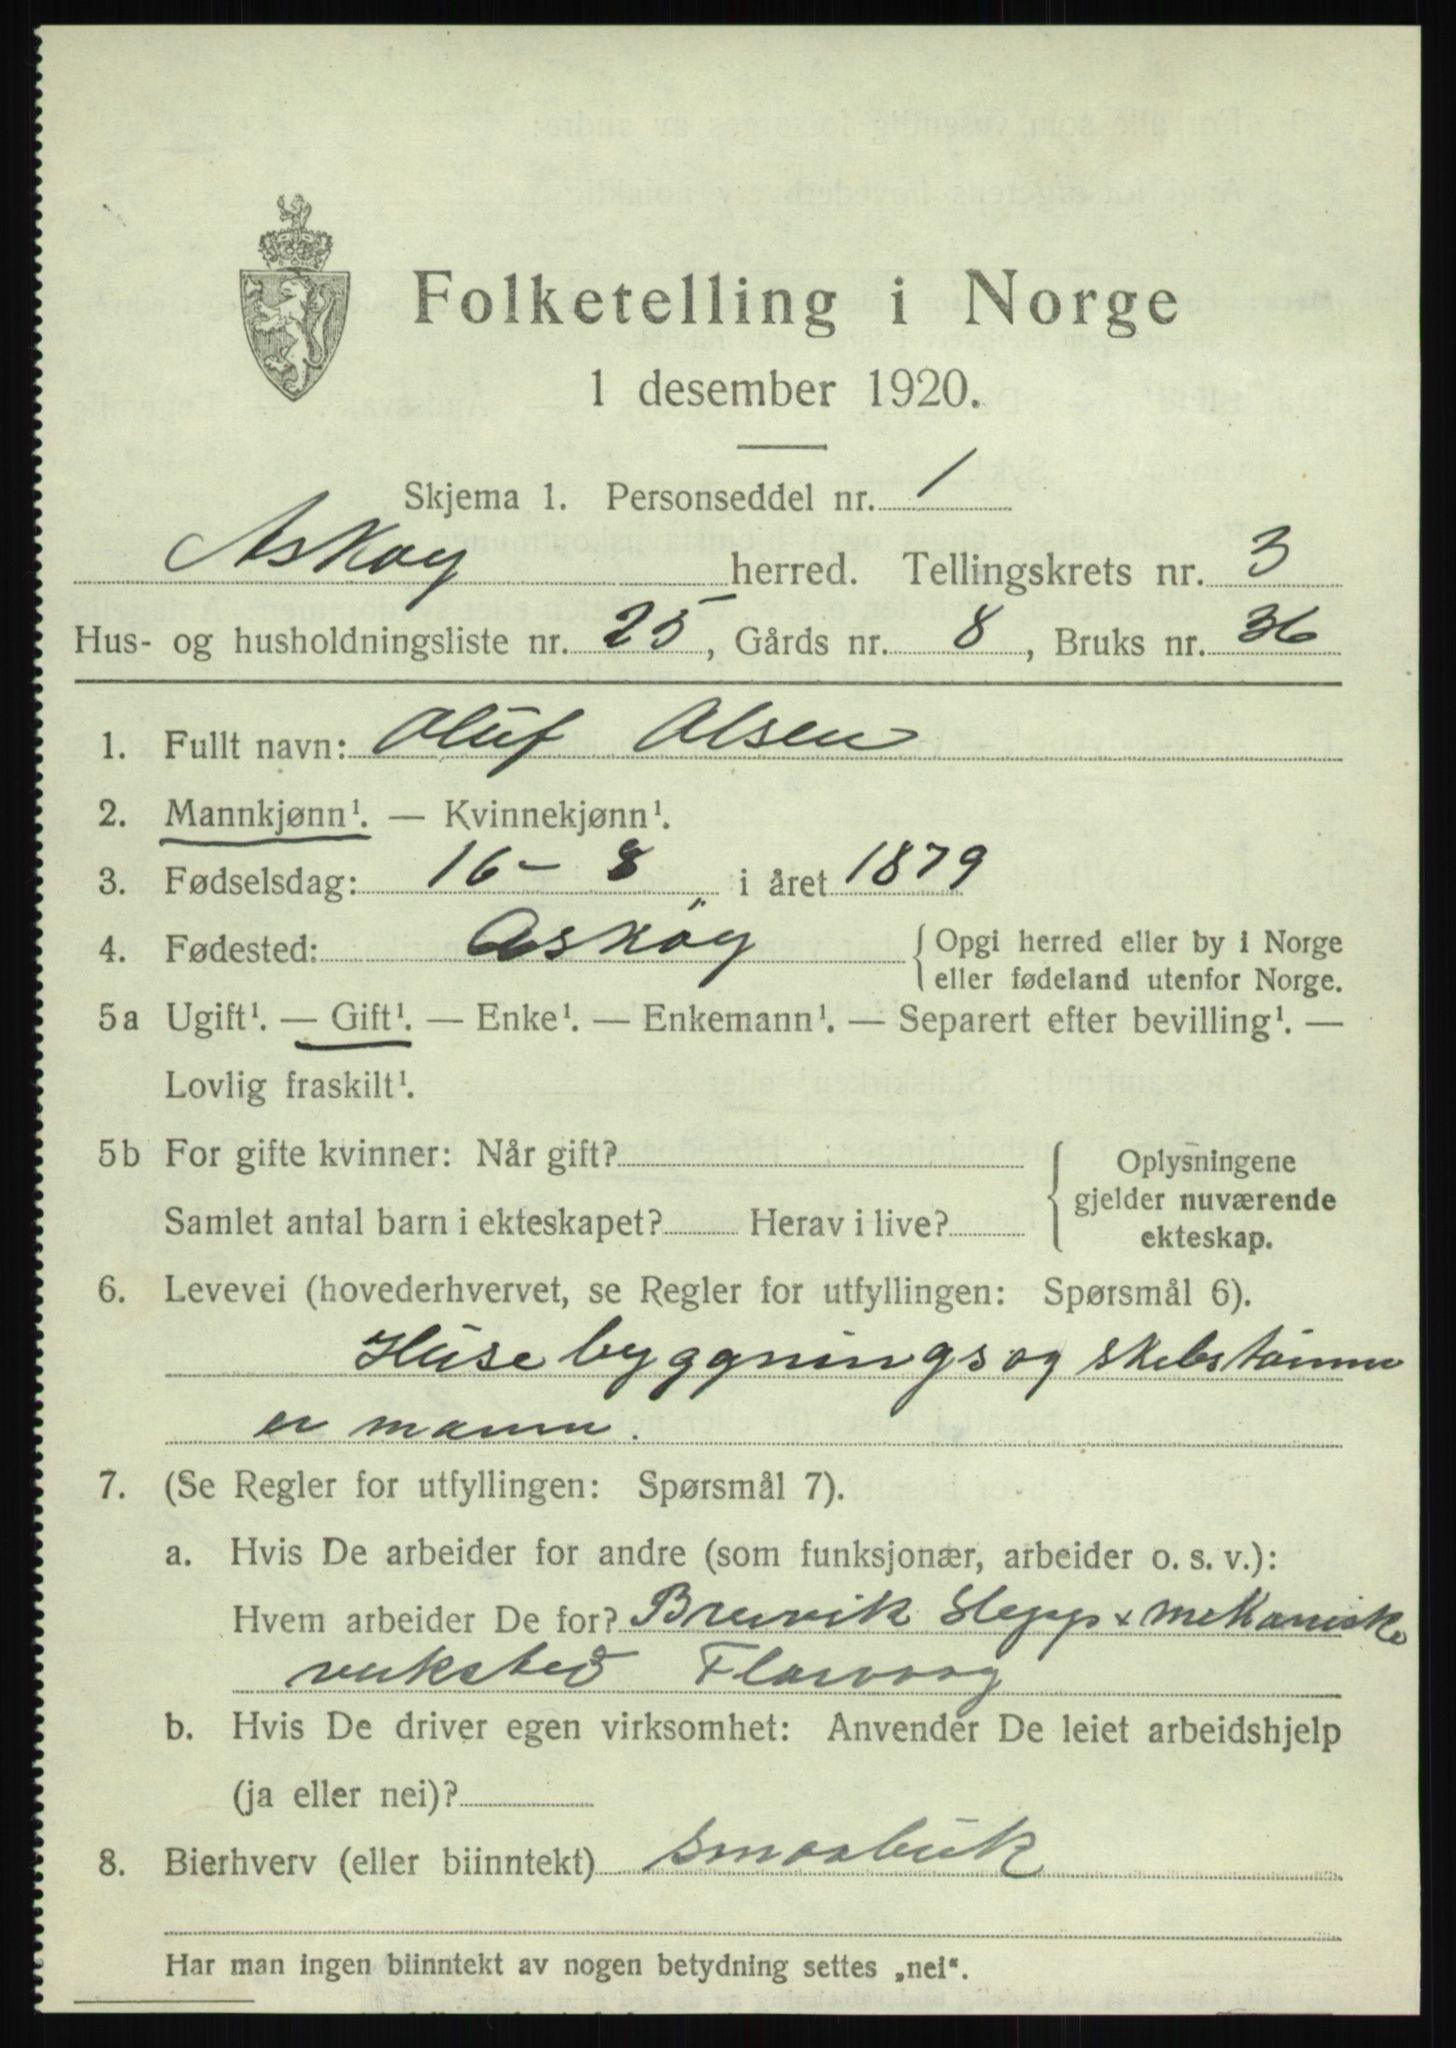 Folketelling i Norge
1 desember 1920.
Skjema 1. Personseddel nr. 1
Askøy herred. Tellingskrets nr. 3
Hus- og husholdningsliste nr. 25, Gårds nr. 8, Bruks nr. 36
1. Fullt navn: Oluf Olsen
2. Mannkjønn¹. — Kvinnekjønn¹.
3. Fødselsdag: 16 - 8 i året 1879
4. Fødested: Askøy { Opgi herred eller by i Norge
eller fødeland utenfor Norge.
5a Ugift¹. — Gift¹. — Enke¹. — Enkemann¹. — Separert efter bevilling¹. —
Lovlig fraskilt¹.
5b For gifte kvinner: Når gift? { Oplysningene
gjelder nuværende
Samlet antal barn i ekteskapet? Herav i live?
ekteskap.
6. Levevei (hovederhvervet, se Regler for utfyllingen: Spørsmål 6).
Husebyggnings og skebstømm
er mann.
7. (Se Regler for utfyllingen: Spørsmål 7).
a. Hvis De arbeider for andre (som funksjonær, arbeider o. s. v.):
Hvem arbeider De for? Brevik Slepp & mekaniske
verksted Florvaag
b. Hvis De driver egen virksomhet: Anvender De leiet arbeidshjelp
(ja eller nei)?
8. Bierhverv (eller biinntekt) smaabruk
Har man ingen biinntekt av nogen betydning settes „nei“.